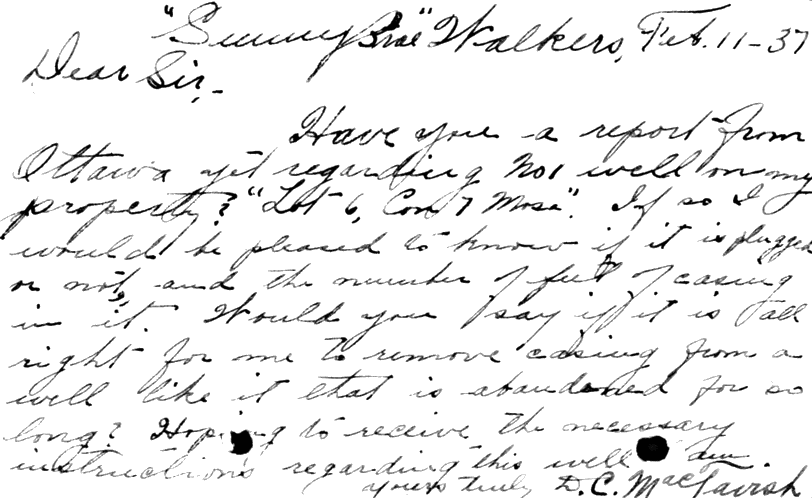 "Sunny Brae" Walkers, Feb. 11-37
Dear Sir,-
Have you a report from
Ottawa yet regarding No 1 well on my
property? "Lot 6, Con 7 Mosa". If so I
would be pleased to know if it is plugged
or not, and the number of feet of casing
in it. Would you say if it is all
right for me to remove casing from a
well like it that is abandoned for so
long? Hoping to receive the necessary
instructions regarding this well I am.
yours truly D.C. MacTavish